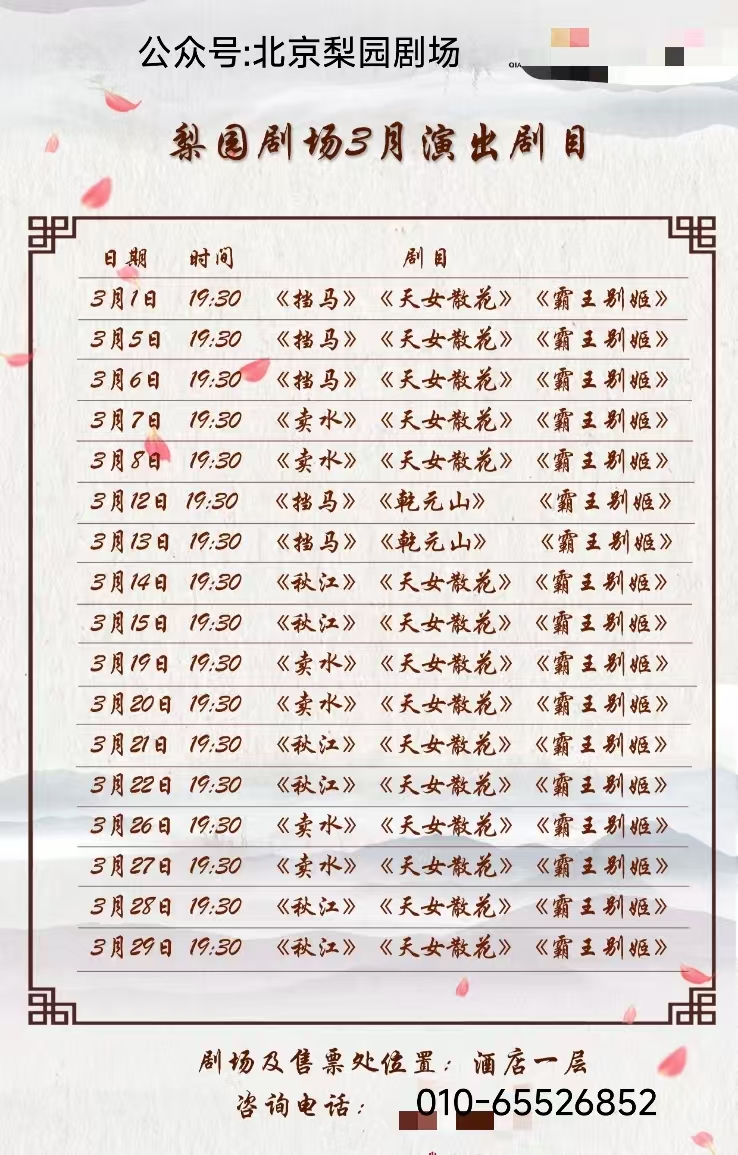 公众号:北京梨园剧场
QIA
梨园剧场3月演出剧目
日期 时间 剧目
3月1日 19:30 《挡马》 《天女散花》 《霸王别姬》
3月5日 19:30 《挡马》 《天女散花》 《霸王别姬》
3月6日 19:30 《挡马》 《天女散花》 《霸王别姬》
3月7日 19:30 《卖水》 《天女散花》 《霸王别姬》
3月8日 19:30 《卖水》 《天女散花》 《霸王别姬》
3月12日 19:30 《挡马》 《乾元山》 《霸王别姬》
3月13日 19:30 《挡马》 《乾元山》 《霸王别姬》
3月14日 19:30 《秋江》 《天女散花》 《霸王别姬》
3月15日 19:30 《秋江》 《天女散花》 《霸王别姬》
3月19日 19:30 《卖水》 《天女散花》 《霸王别姬》
3月20日 19:30 《卖水》 《天女散花》 《霸王别姬》
3月21日 19:30 《秋江》 《天女散花》 《霸王别姬》
3月22日 19:30 《秋江》 《天女散花》 《霸王别姬》
3月26日 19:30 《卖水》 《天女散花》 《霸王别姬》
3月27日 19:30 《卖水》 《天女散花》 《霸王别姬》
3月28日 19:30 《秋江》 《天女散花》 《霸王别姬》
3月29日 19:30 《秋江》 《天女散花》 《霸王别姬》
剧场及售票处位置：酒店一层
咨询电话： 010-65526852